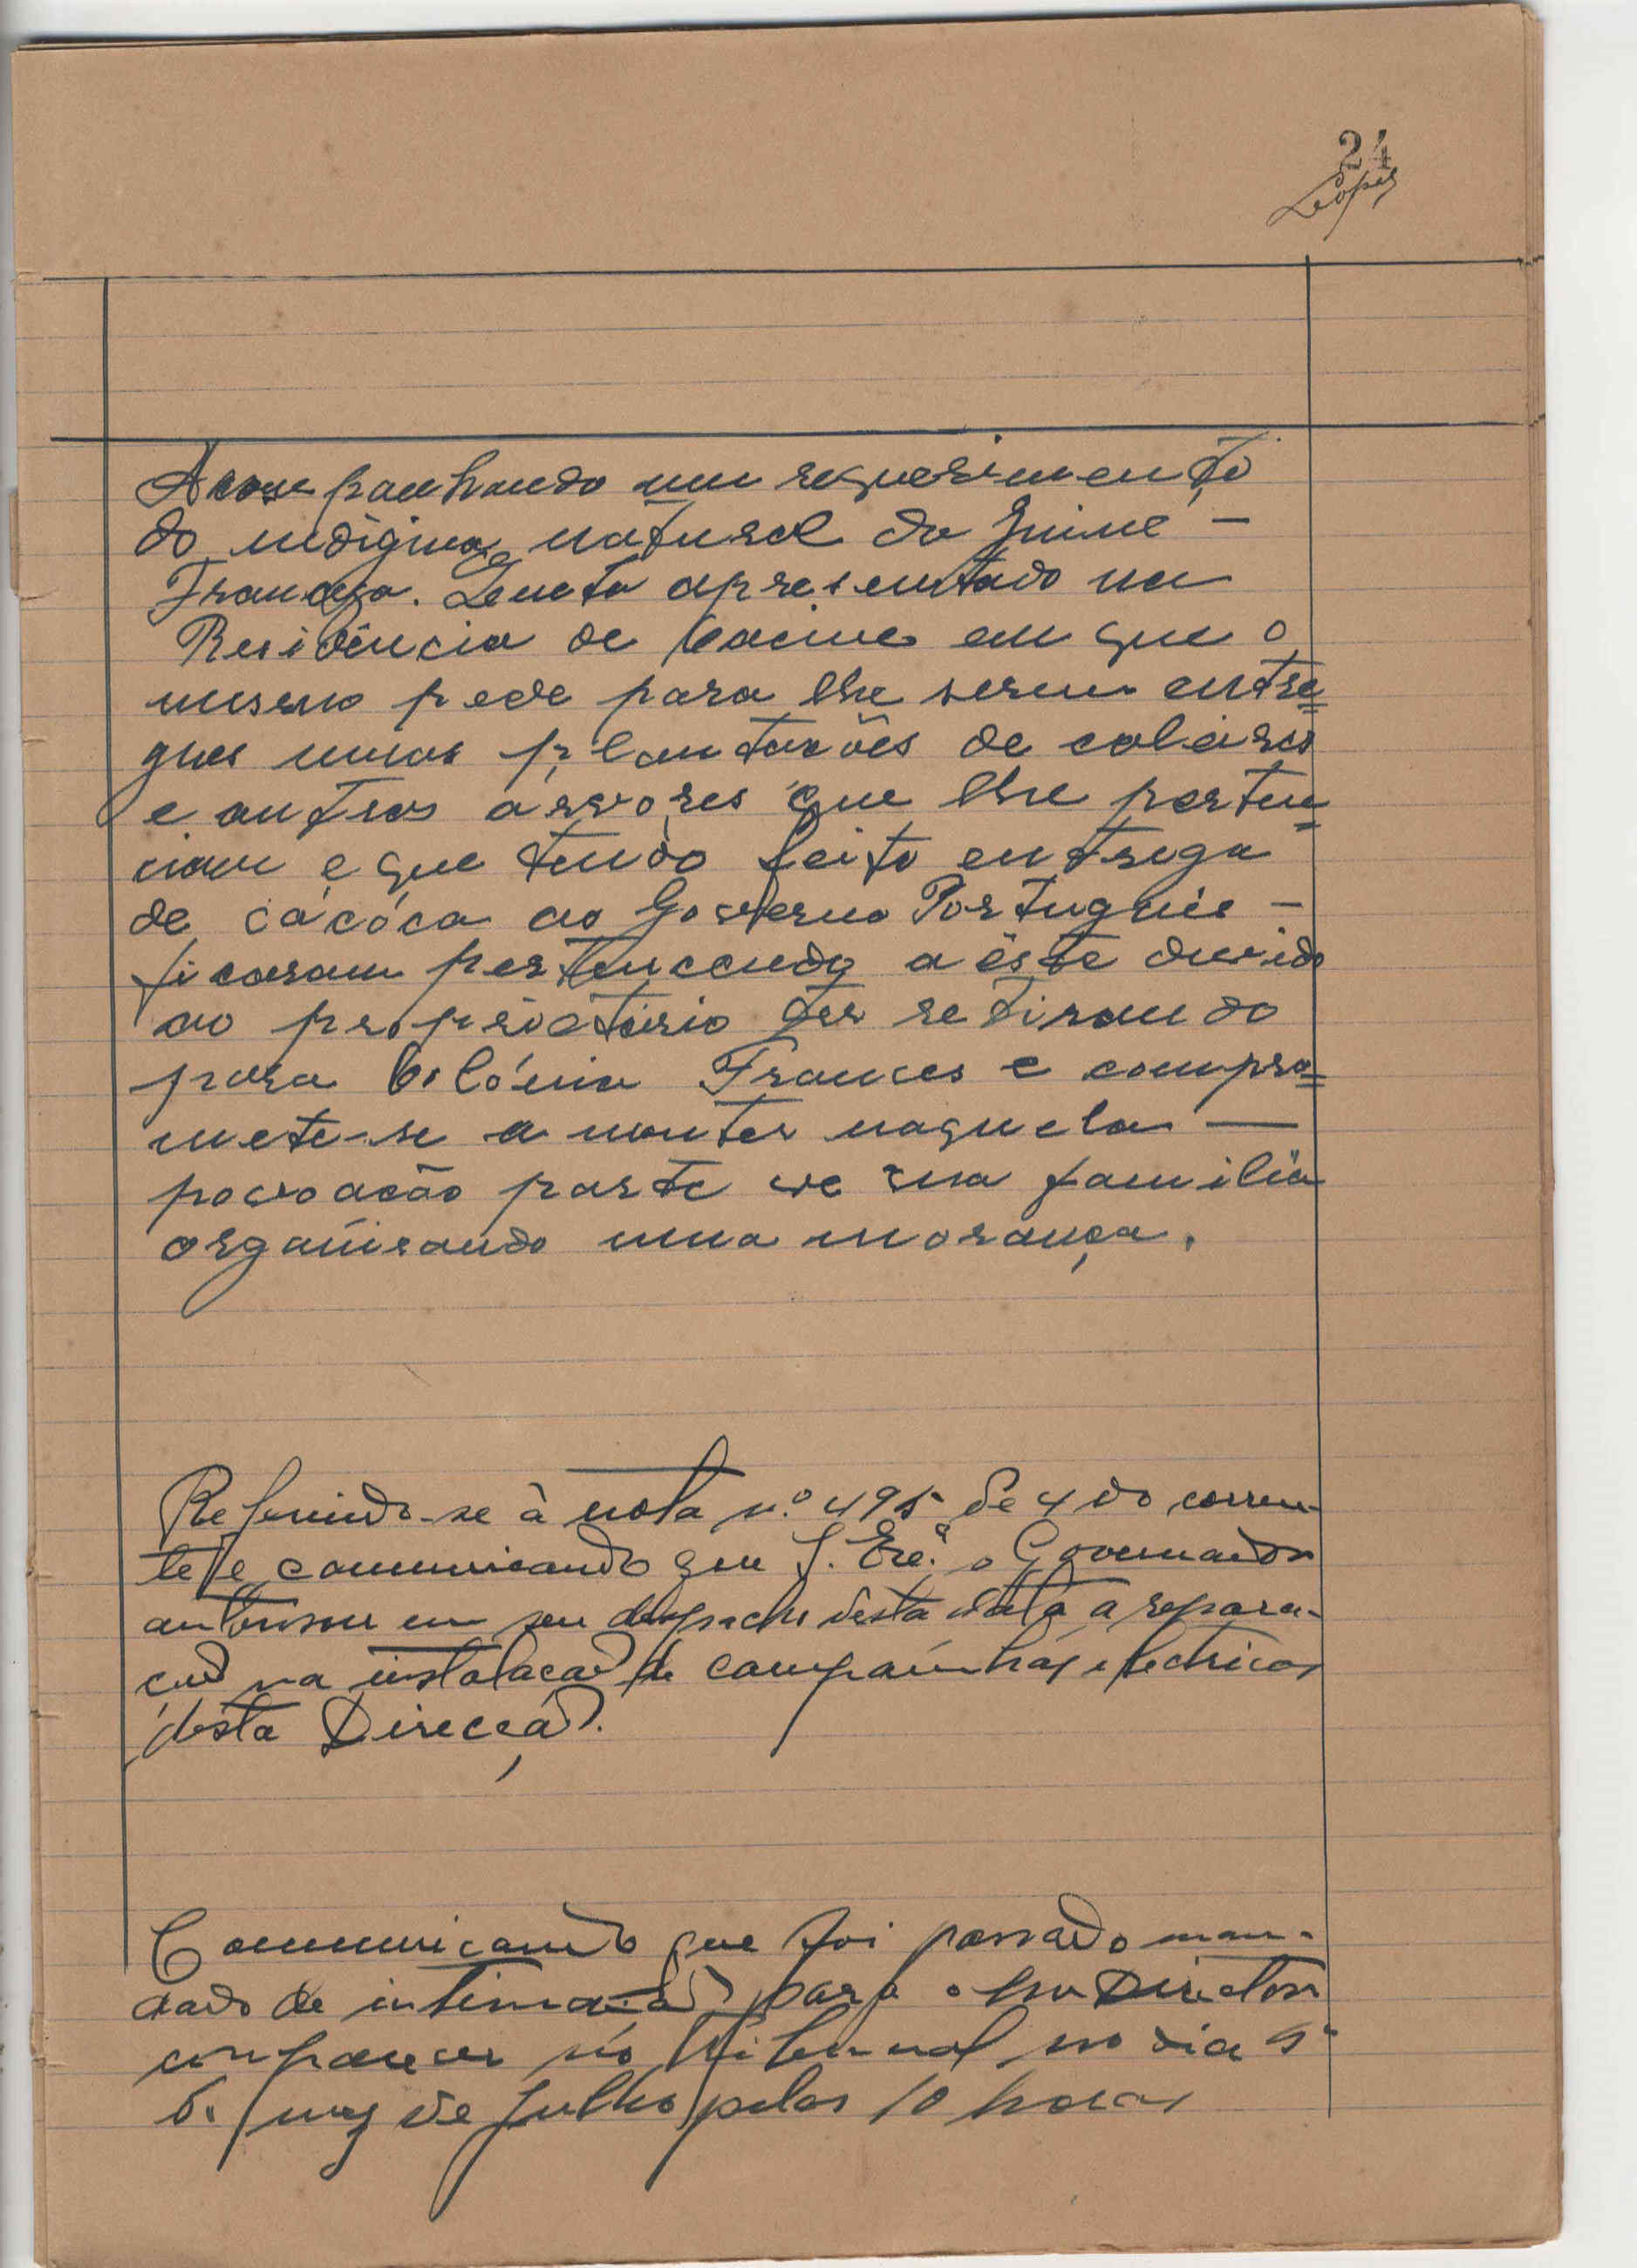 24
Lopes
Acompanhando um requerimento
do indigina natural da Guiné -
Francesa. Leneta apresentado na
Residência de Cacine em que o
mesmo pede para lhe serem entre=
gues umas plantações de coleiras
e outras arvores que lhe perten=
ciam e que tendo feito entrega
de Cacóca ao Governo Português -
ficaram pertencendo a êste devido
ao propriotário ter retirando
para Colónia Frances e compro=
mete-se a manter naquela —
povoação parte de sua familia
organisando uma morança.
Referindo-se à nota n.º 495 de 4 do corren-
te e comunicando que S. Exc.ª o Governador
autorisou em seu despacho desta data a repara-
ção na instalação de campaínhas electricas
desta Direcção.
Communicando que foi passado man-
dado de intimação para o Director
comparecer no Tribunal no dia
do mez de Julho pelas 10 horas